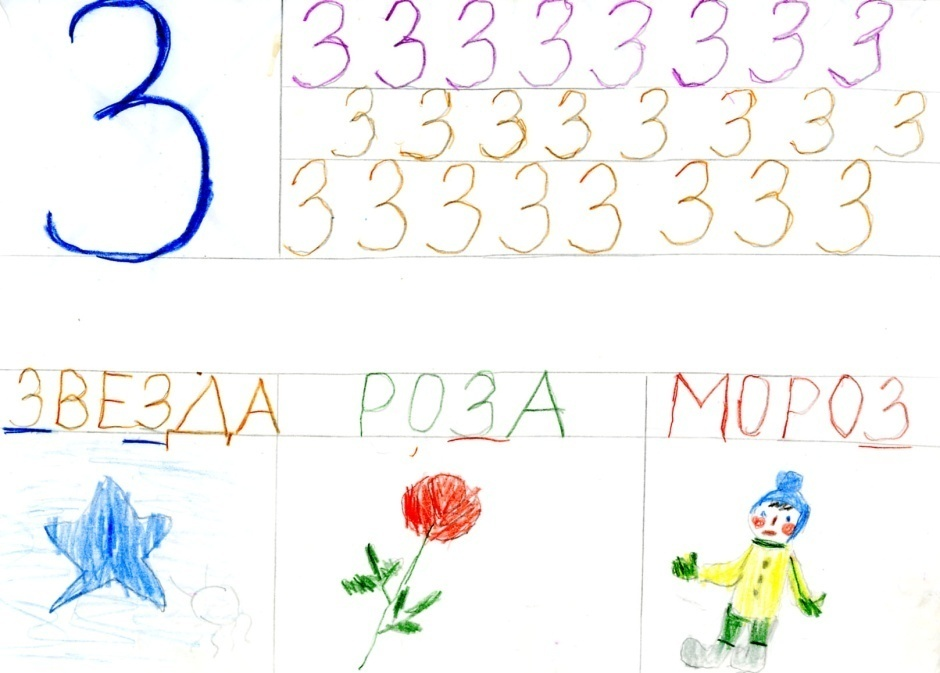 З
З З З З З З З З
З З З З З З З З
З З З З З З З З
ЗВЕЗДА
РОЗА
МОРОЗ